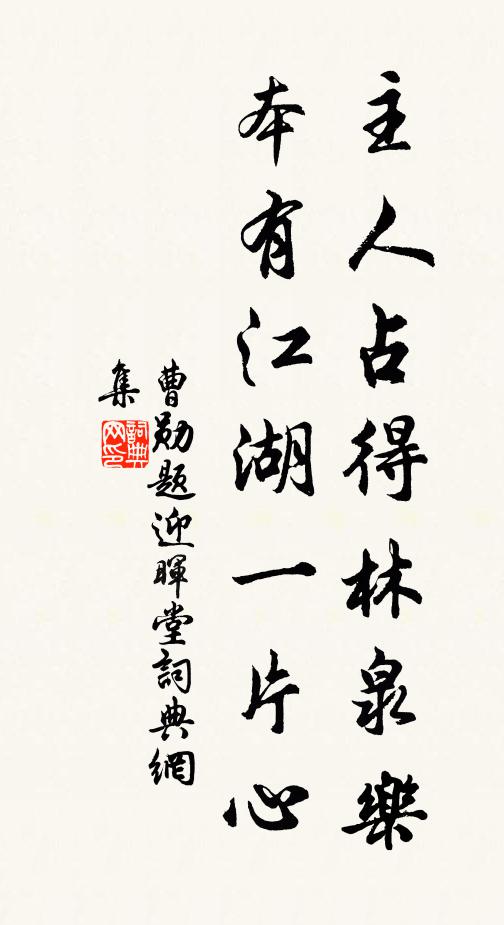 主人占得林泉樂
本有江湖一片心
曹勛題迎暉堂詞典網
集
詞典
网印